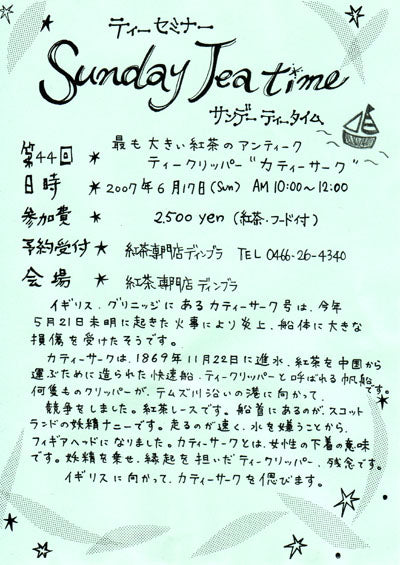 ティーセミナー
Sunday Tea time
サンデーティータイム
第44回 ★ 最も大きい紅茶のアンティーク
ティークリッパー"カティーサーク"
日時 ★ 2007年6月17日(Sun) AM10:00～12:00
参加費 ★ 2,500 yen (紅茶・フード付)
予約受付 ★ 紅茶専門店ディンブラ TEL 0466-26-4340
会場 ★ 紅茶専門店ディンブラ
イギリス、グリニッジにあるカティーサーク号は、今年
5月21日未明に起きた火事により炎上、船体に大きな
損傷を受けたそうです。
カティーサークは、1869年11月22日に進水、紅茶を中国から
運ぶために造られた快速船、ティークリッパーと呼ばれる帆船です。
何隻ものクリッパーが、テムズ川沿いの港に向かって、
競争をしました。紅茶レースです。船首にあるのが、スコット
ランドの妖精ナニーです。走るのが速く、水を嫌うことから、
フィギアヘッドになりました。カティーサークとは、女性の下着の意味
です。妖精を乗せ、縁起を担いだティークリッパー、残念です。
イギリスに向かって、カティーサークを偲びます。